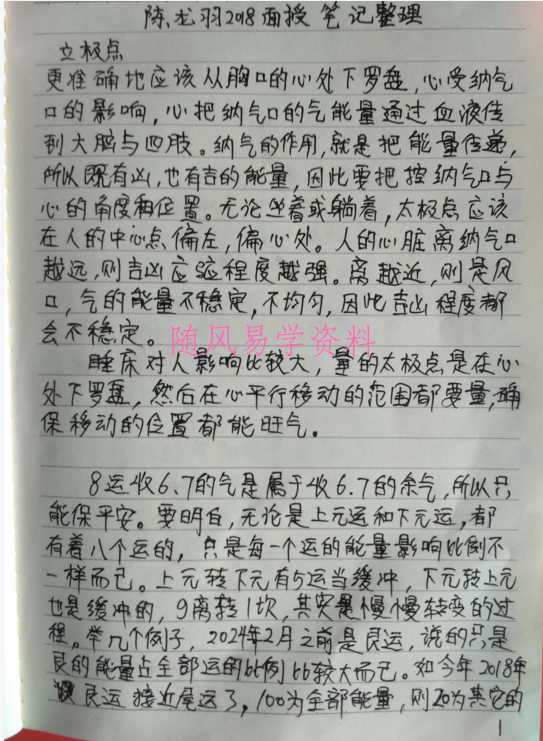 陈龙羽2018面授笔记整理
立极点
更准确地应该从胸口的心处下罗盘,心受纳气
口的影响,心把纳气口的气能量通过血液传
到大脑与四肢。纳气的作用,就是把能量传递,
所以既有凶,也有吉的能量,因此要把控纳气口与
心的角度和位置。无论坐着或躺着,太极点应该
在人的中心点偏左,偏心处。人的心脏离纳气口
越远,则吉凶应验程度越强。离越近,则是风
口,气的能量不稳定,不均匀,因此吉凶程度都
会不稳定。
随风易学资料
睡床对人影响比较大,量的太极点是在心
处下罗盘,然后在心平行移动的范围都要量,确
保移动的位置都能旺气。
8运收6、7的气是属于收6.7的余气,所以只
能保平安。要明白,无论是上元运和下元运,都
有着八个运的,只是每一个运的能量影响比例不
一样而已。上元转下元有5运当缓冲,下元转上元
也是缓冲的,9离转1坎,其实是慢慢转变的过
程。举几个例子,2024年2月之前是艮运,说的只是
艮的能量占全部运的比例比较大而已。如今年2018年
艮运接近尾运了,100为全部能量,则20为其它的
1